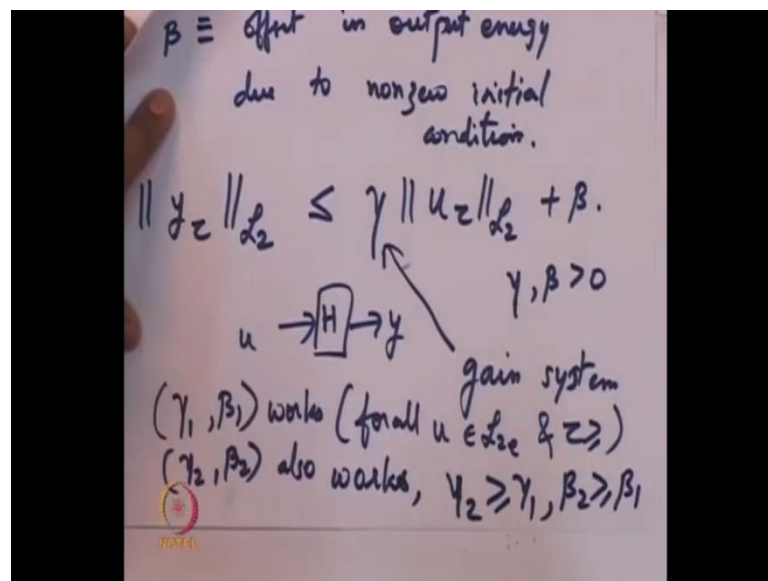 β ≡ effect in output energy
due to nonzero initial
condition.
‖ y_τ ‖_ℒ₂ ≤ γ ‖ u_τ ‖_ℒ₂ + β.
γ, β > 0
u → H → y
gain system
(γ₁, β₁) works (for all u ∈ ℒ₂ₑ & τ ≥)
(γ₂, β₂) also works, γ₂ ≥ γ₁, β₂ ≥ β₁
NPTEL